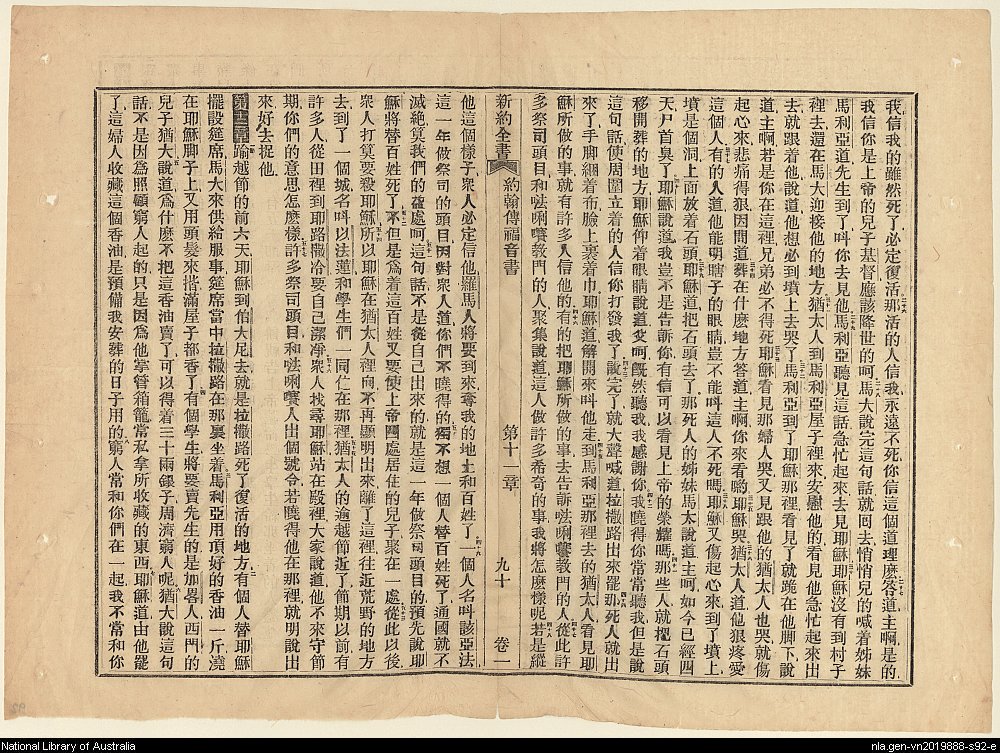 我信我的雖然死了必定復活那活的人信我永遠不死你信這個道理麼答道主啊是的
我信你是上帝的兒子基督應該降世的呵馬大說完這句話就回去悄悄兒的喊着姊妹
馬利亞道先生到了呌你去見他馬利亞聽見這話急忙起來去見耶穌耶穌沒有到村子
裡去還在馬大迎接他的地方猶太人到馬利亞屋子裡來安慰他的看見他急忙起來出
去就跟着他說道他想必到墳上去哭了馬利亞到了耶穌那裡看見了就跪在他脚下說
道主啊若是你在這裡兄弟必不得死耶穌看見那婦人哭又見跟他的猶太人也哭就傷
起心來悲痛得狠因問道葬在什麽地方答道主啊你來看喲耶穌哭猶太人道他狠疼愛
這個人有的人道他能明瞎子的眼睛豈不能呌這人不死嗎耶穌又傷起心來到了墳上
是個洞上面放着石頭耶穌道把石頭去了那死人的姊妹馬大說道主呵如今已經四
天尸首臭了耶穌說道我豈不是告訴你有信可以看見上帝的榮耀嗎那些人就擡石頭
移開葬的地方耶穌仰着眼睛說道父呵旣然聽我我感謝你我曉得常常聽我但是說
這句話使周圍立着的人信你打發我了說完了就大聲喊道拉撒路出來罷那死人就出
來了手脚綑着布臉上裹着巾耶穌道解開來呌他走到馬利亞那裡去的猶太人看見耶
穌所做的事就有許多人信他的有的把耶穌所做的事去告訴𠵽唎㘔教門的人從此許
多祭司頭目和𠵽唎㘔教門的人聚集說道這人做許多希奇的事我將怎麽樣呢若是縱
新約全書 約翰傳福音書 第十一章 九十 卷一
他這個樣子衆人必定信他羅馬人將要到來奪我的地土和百姓了一個人名呌該亞法
這一年做祭司的頭目因對衆人道你們不曉得的獨不想一個人替百姓死了通國就不
滅絕算我們的益處呵這句話不是從自己出來的就是這一年做祭司頭目的預先說耶
穌將替百姓死了不但是爲着這百姓又要使上帝四處居住的兒子聚在一處從此以後
衆人打算要殺耶穌所以耶穌在猶太人裡向不再顯明出來離了這裡往近荒野的地方
去到了一個城名呌以法蓮和學生們一同住在那裡猶太人的逾越節近了節期以前有
許多人從田裡到耶路撒冷要自己潔凈衆人找尋耶穌站在殿裡大家說道他不來守節
期你們的意思怎麽樣許多祭司頭目和𠵽唎㘔人出個號令若曉得他在那裡就明說出
來好去捉他
第十二章逾越節的前六天耶穌到伯大尼去就是拉撒路死了復活的地方有個人替耶穌
擺設筵席馬大來供給服事筵席當中拉撒路在那裏坐着馬利亞用頂好的香油一斤澆
在耶穌脚子上又用頭髮來揩滿屋子都香了有個學生將要賣先生的是加畧人西門的
兒子猶大說道爲什麽不把這香油賣了可以得着三十兩銀子周濟窮人呢猶大說這句
話不是因爲照顧窮人起的只是因爲他掌管箱籠常私拿所收藏的東西耶穌道由他罷
了這婦人收藏這個香油是預備我安葬的日子用的窮人常和你們在一起我不常和你
National Library of Australia
nla.gen-vn2019888-s92-e